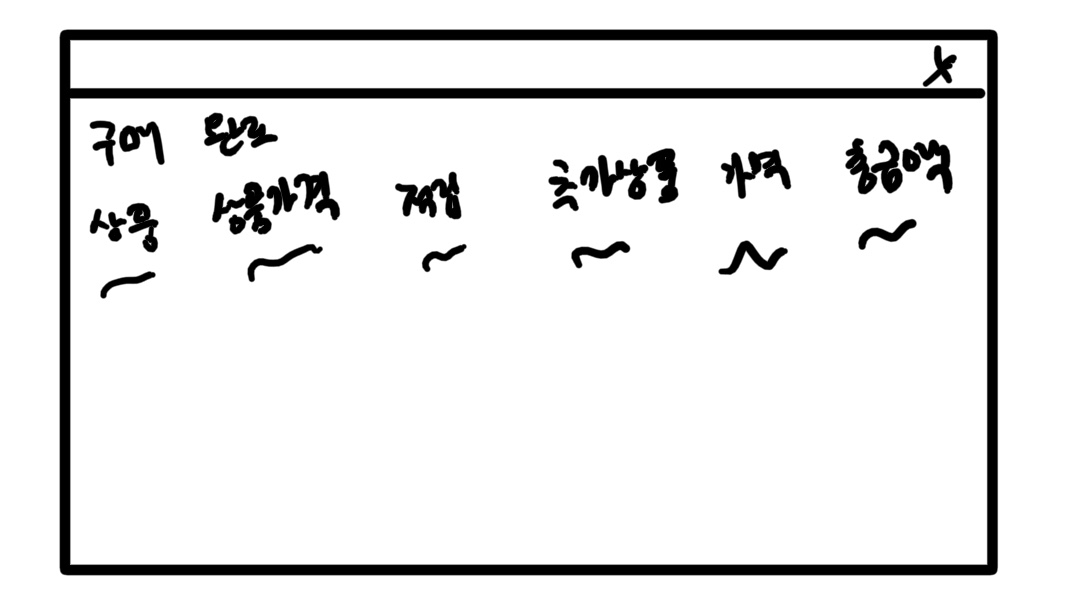 X
구매 완료
상품 상품가격 적립 추가상품 가격 총금액